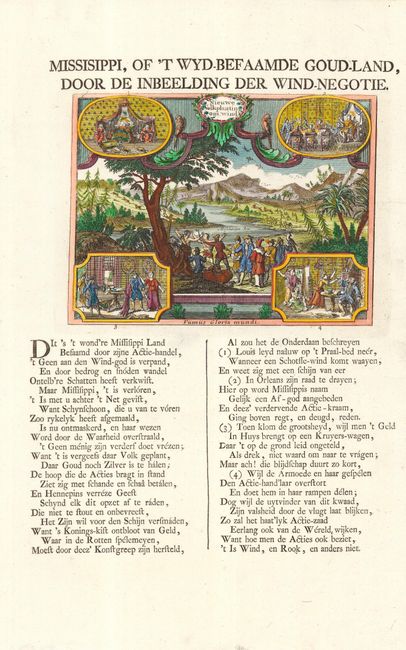 MISSISIPPI, OF 'T WYD-BEFAAMDE GOUD-LAND,
DOOR DE INBEELDING DER WIND-NEGOTIE.
Nieuwe
wind
Fumus Gloria mundi.
3
4
DIt 's 't wond're Missisippi Land
Befaamd door zijne Actie-handel,
't Geen aan den Wind-god is verpand,
En door bedrog en snóden wandel
Ontelb're Schatten heeft verkwist.
Maar Missisippi, 't is verlóren,
't Is met u achter 't Net gevist,
Want Schynschoon, die u van te vóren
Zoo rykelyk heeft afgemaald,
Is nu ontmaskerd, en haar wezen
Word door de Waarheid overstraald,
't Geen ménig zijn verderf doet vrézen;
Want 't is vergeefs daar Volk geplant,
Daar Goud noch Zilver is te hálen;
De hoop die de Acties bragt in stand
Ziet zig met schande en schad betálen,
En Hennepins verréze Geest
Schynd elk dit opzet af te ráden,
Die niet te stout en onbevreest,
Het Zijn wil voor den Schijn versmáden,
Want 's Konings-kist ontbloot van Geld,
Waar in de Rotten spélemeyen,
Moest door deez' Konstgreep zijn hersteld,
Al zou het de Onderdaan beschreyen
(1) Louis leyd naluw op 't Praal-bed neêr,
Wanneer een Schotsse-wind komt waayen,
En weet zig met een schijn van eer
(2) In Orleans zijn raad te drayen;
Hier op word Missisippis naam
Gelijk een Af-god aangebeden
En deez' verdervende Actie-kraam,
Ging boven regt, en deugd, reden.
(3) Toen klom de grootsheyd, wijl men 't Geld
In Huys brengt op een Kruyers-wagen,
Daar 't op de grond leid ongeteld,
Als drek, niet waard om naar te vrágen;
Maar ach! die blijdschap duurt zo kort,
(4) Wijl de Armoede en haar gespélen
Den Actie-hand'laar overstort
En doet hem in haar rampen délen;
Dog wijl de uytvinder van dit kwaad,
Zijn valsheid door de vlugt laat blijken,
Zo zal het haat'lyk Actie-zaad
Eerlang ook van de Wéreld, wijken,
Want hoe men de Acties ook beziet,
't Is Wind, en Rook, en anders niet.